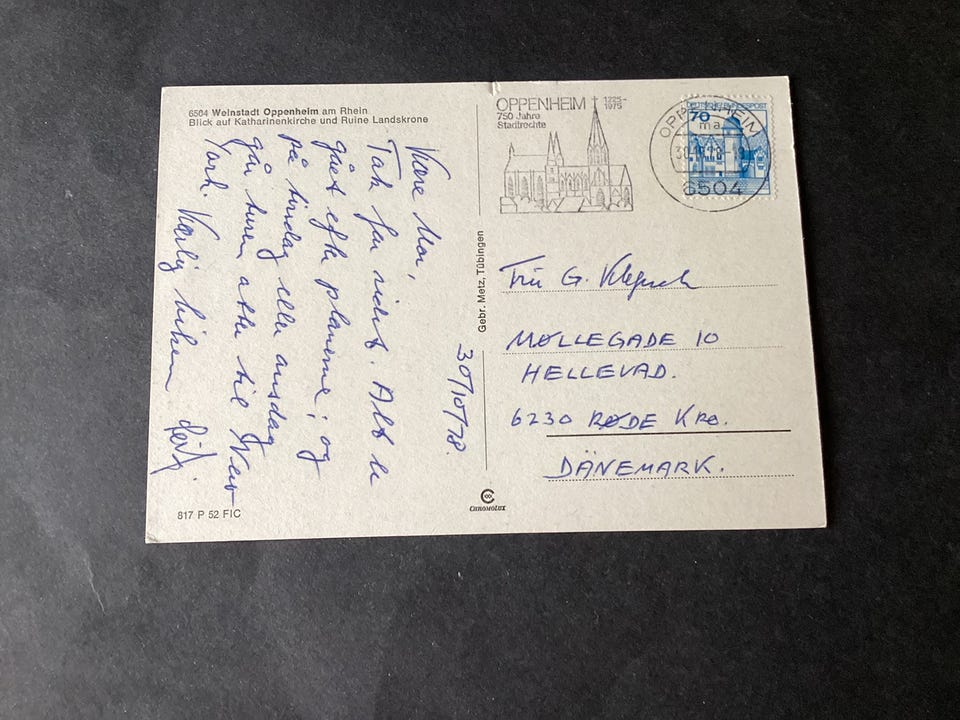 6504 Weinstadt Oppenheim am Rhein
Blick auf Katharinenkirche und Ruine Landskrone
30/10/78.
Kære Mor,
Tak for sidst. Alt er
gået efter planerne; og
på tirsdag eller onsdag
går turen atter til New
York. Kærlig hilsen
817 P 52 FIC
Gebr. Metz, Tübingen
CHROMOLUX
OPPENHEIM 1225-
1975
750 Jahre
Stadtrechte
DEUTSCHE BUNDESPOST
70
OPPENHEIM
ma
6504
Fru G.
MØLLEGADE 10
HELLEVAD.
6230 RØDE KRO.
DÄNEMARK.